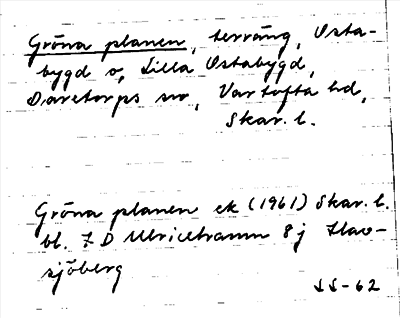 Gröna planen, terräng, Osta-
bygd o, Lilla Ostabygd,
Daretorps sn, Vartofta hd,
Skar. l.
Gröna planen ek (1961) Skar. l.
bl. 7 D Ulricehamn 8 j
sjöberg
-62